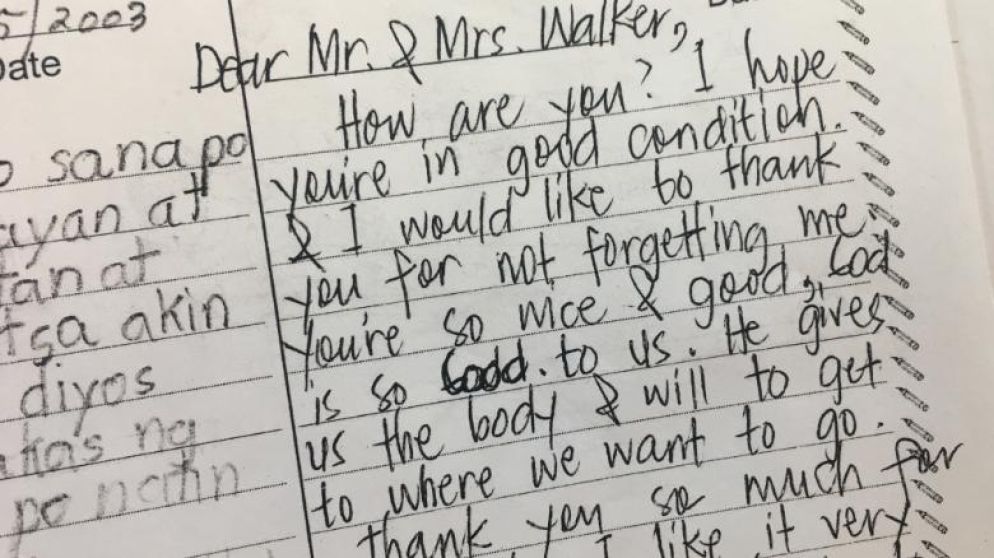 5/2003
Date
sanapo
ayan at
tan at
tsa akin
diyos
ng
po
Dear Mr. & Mrs. Walker,
How are you? I hope
you're in good condition.
& I would like to thank
you for not forgetting me.
You're so nice & good. God
is so Good. to us. He gives
us the body & will to get
to where we want to go.
thank you so much for
I like it very